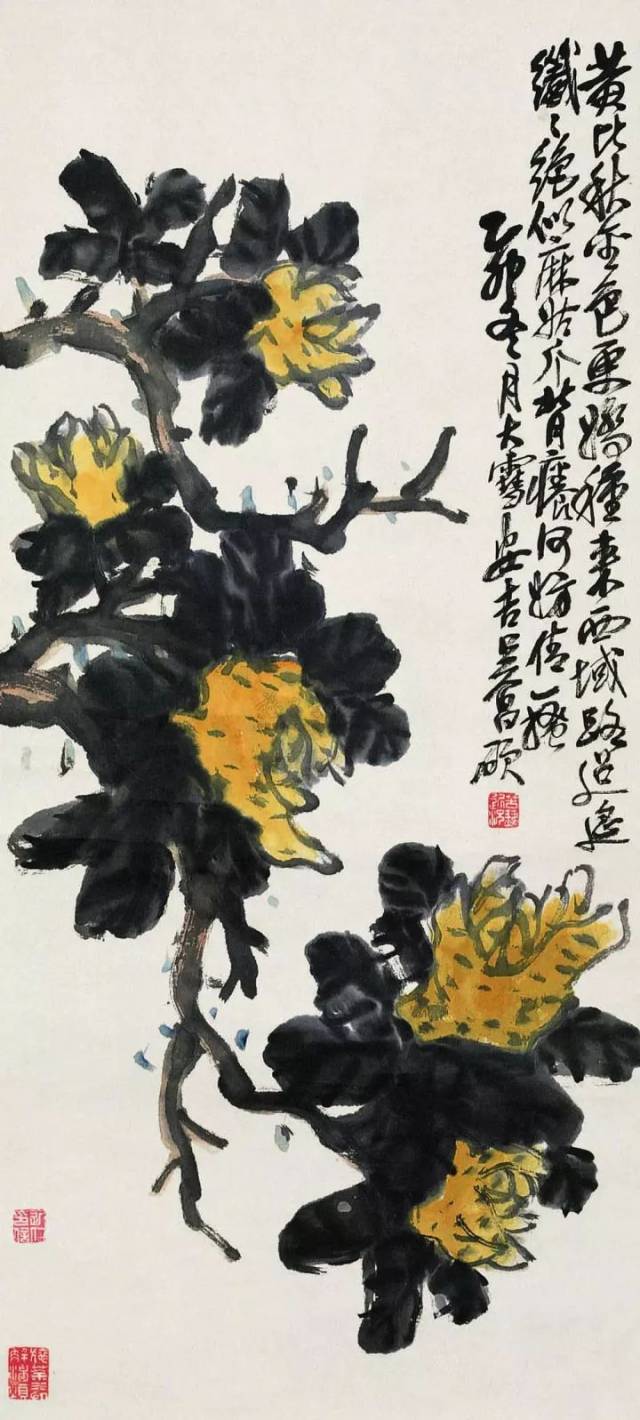 黄比秋金色更嬌種来西域路迢遥
纖〻絕似麻姑爪背癢何妨倩一搔
乙卯冬月大雪安吉吳昌碩